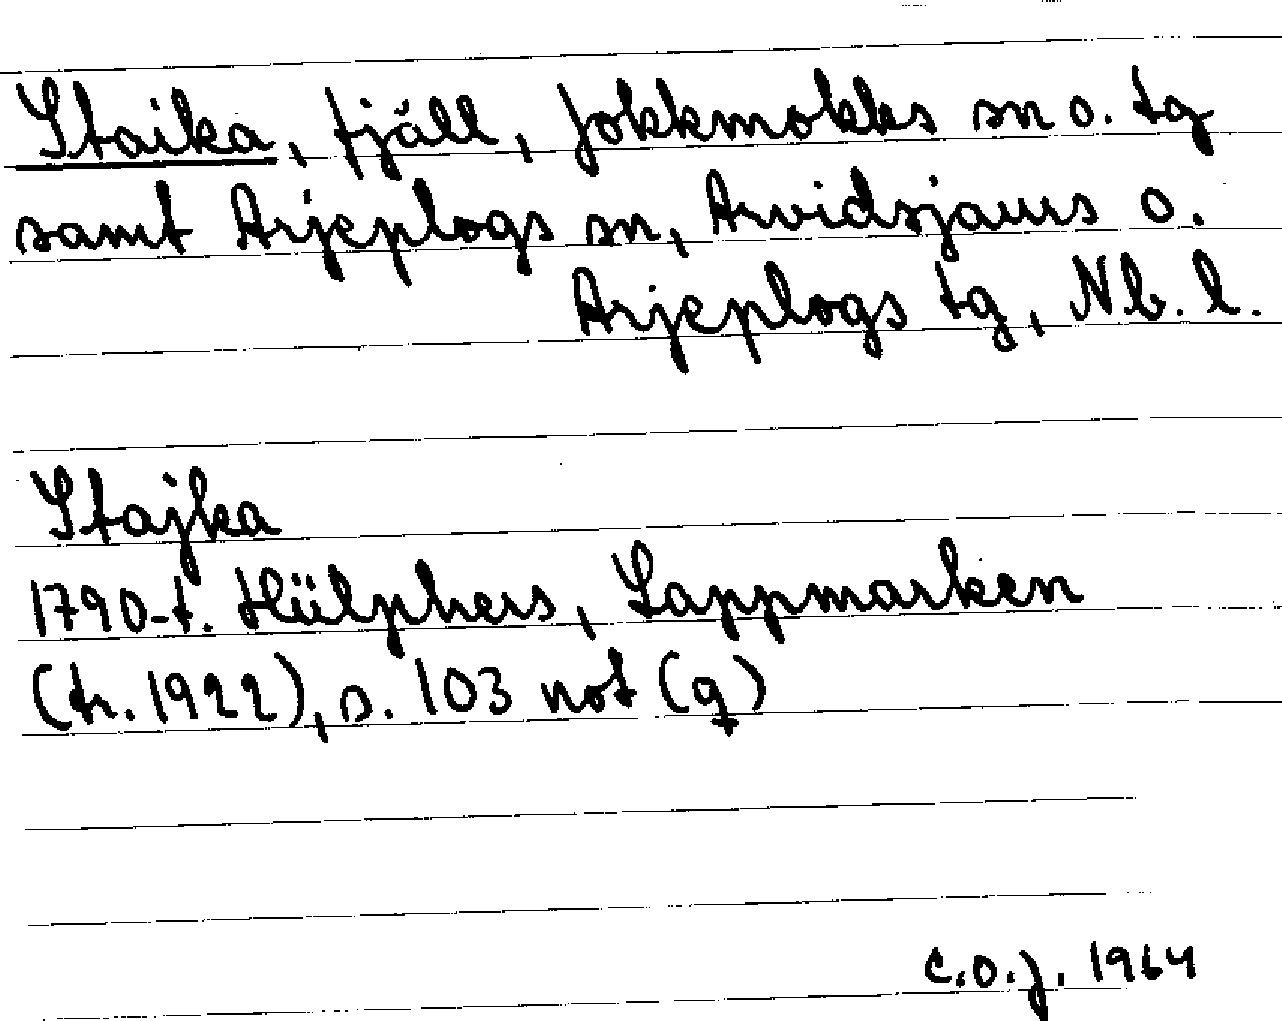 Staika, fjäll, Jokkmokks sn o. tg
samt Arjeplogs sn, Arvidsjaurs o.
Arjeplogs tg, Nb. l.
Stajka
1790-t. Hülphers, Lappmarken
(tr. 1922), s. 103 not (q)
C.O.J. 1964